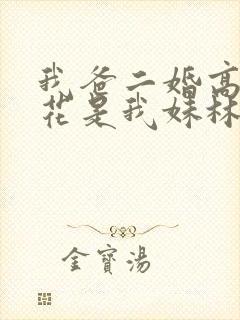 我爸二婚高
花是我妹林
金寶湯